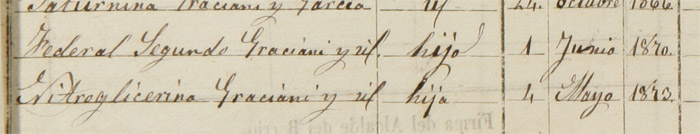 Saturnina Graciani y Garcia id 24. Octubre 1866.
Federal Segundo Graciani y id. hijo 1 Junio 1870.
Nitroglicerina Graciani y id. hija 4 Mayo 1873.
Firma del Alcalde del Barrio